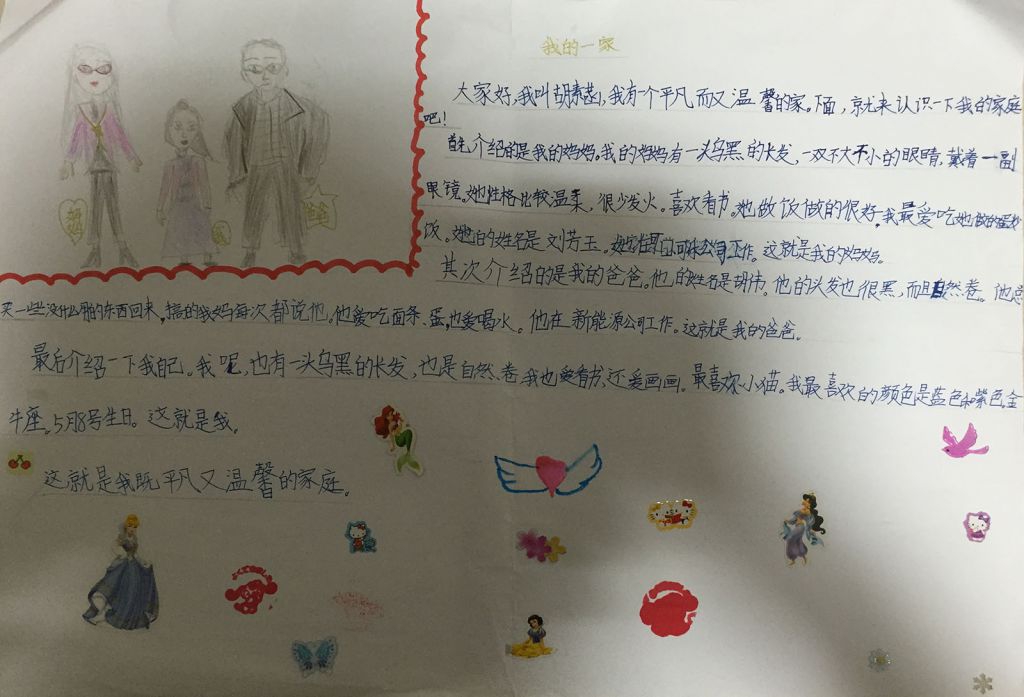 我的一家
大家好，我叫胡素菡，我有个平凡而又温馨的家。下面，就来认识一下我的家庭
吧！
首先介绍的是我的妈妈。我的妈妈有一头乌黑的长发，一双不大不小的眼睛，戴着一副
眼镜。她性格比较温柔，很少发火。喜欢看书。她做饭做的很好，我最爱吃她做的蛋炒
饭。她的姓名是刘芳玉。她在公司工作。这就是我的妈妈。
其次介绍的是我的爸爸。他的姓名是胡伟。他的头发也很黑，而且自然卷。他总
买一些没什么用的东西回来，搞的我妈每次都说他。他爱吃面条、蛋，也爱喝水。他在新能源公司工作。这就是我的爸爸。
最后介绍一下我自己。我呢，也有一头乌黑的长发，也是自然卷，我也爱看书，还爱画画。最喜欢小猫。我最喜欢的颜色是蓝色和紫色。金
牛座。5月8号生日。这就是我。
这就是我既平凡又温馨的家庭。
妈妈
我
爸爸